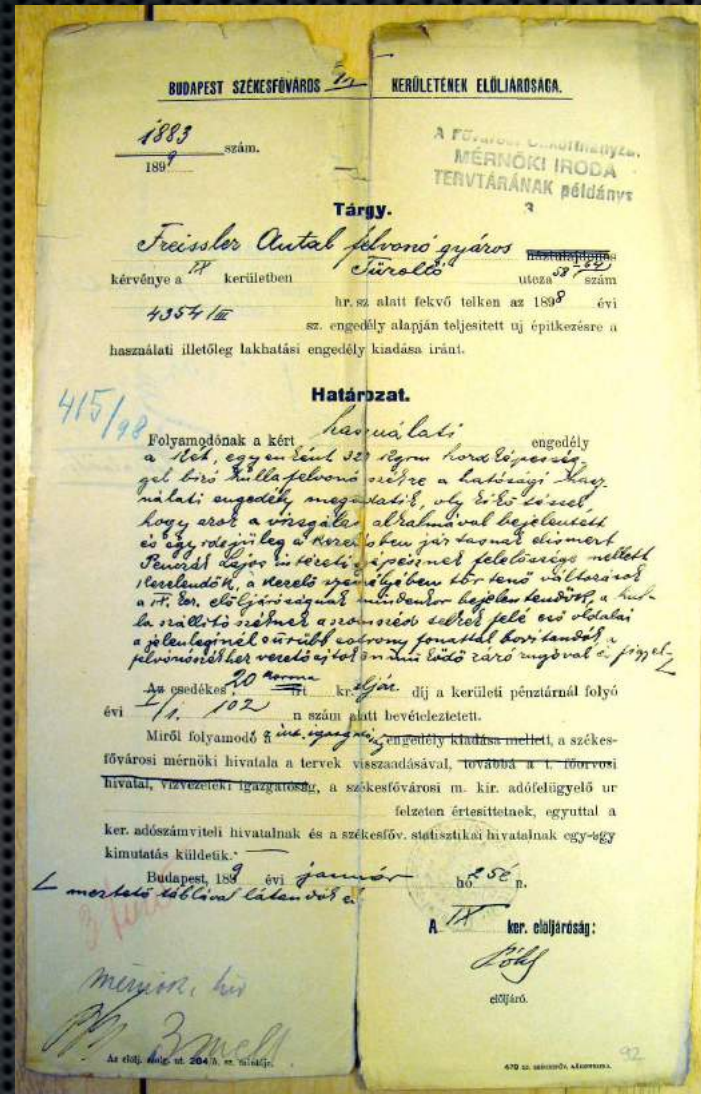 BUDAPEST SZÉKESFŐVÁROS IX KERÜLETÉNEK ELÖLJÁRÓSÁGA.
1883 szám.
1899
MÉRNÖKI IRODA
TERVTÁRÁNAK példánya
3
Tárgy.
Freissler Antal felvonó gyáros háztulajdonos
kérvénye a IX kerületben Tűzoltó utcza 58-64 szám
4354/III hr. sz alatt fekvő telken az 1898 évi
sz. engedély alapján teljesitett uj épitkezésre a
használati illetőleg lakhatási engedély kiadása iránt.
Határozat.
415/98
Folyamodónak a kért használati engedély
a két, egyenként 321 kgrm hordképesség
gel biró hullafelvonó székre a hatósági hasz
nálati engedély megadatik, oly kikötéssel
hogy azok a vizsgálat alkalmával bejelentett
és egyidejüleg a kezelésben jártasnak elismert
Lajos intézeti gépésznek felelőssége mellett
kezelendők, a kezelő személyében történő változások
a IX. ker. elöljáróságnak mindenkor bejelentendők, a hul
la szállító széknek a szomszéd székek felé eső oldalai
a jelenleginél sűrűbb sodrony fonattal boritandók a
felvonószékhez vezető ajtók önműködő záró rugóval és figyel
Az esedékes 20 korona frt kr. eljár. díj a kerületi pénztárnál folyó
évi I/1. 102 n szám alatt bevételeztetett.
Miről folyamodó a int. igazgató engedély kiadása mellett, a székes-
fővárosi mérnöki hivatala a tervek visszaadásával, továbbá a t. főorvosi
hivatal, vizvezetéki igazgatóság, a székesfővárosi m. kir. adófelügyelő ur
felzeten értesittetnek, egyuttal a
ker. adószámviteli hivatalnak és a székesfőv. statisztikai hivatalnak egy-egy
kimutatás küldetik.
Budapest, 1899 évi január hó 25é n.
meztető táblával látandók el
A IX ker. elöljáróság:
elöljáró.
mérnök. hiv
3 mell
Az elölj. szolg. ut. 204 §. sz. mintája.
670 sz. SZÉKESFŐV. HÁZINYOMDA.
92